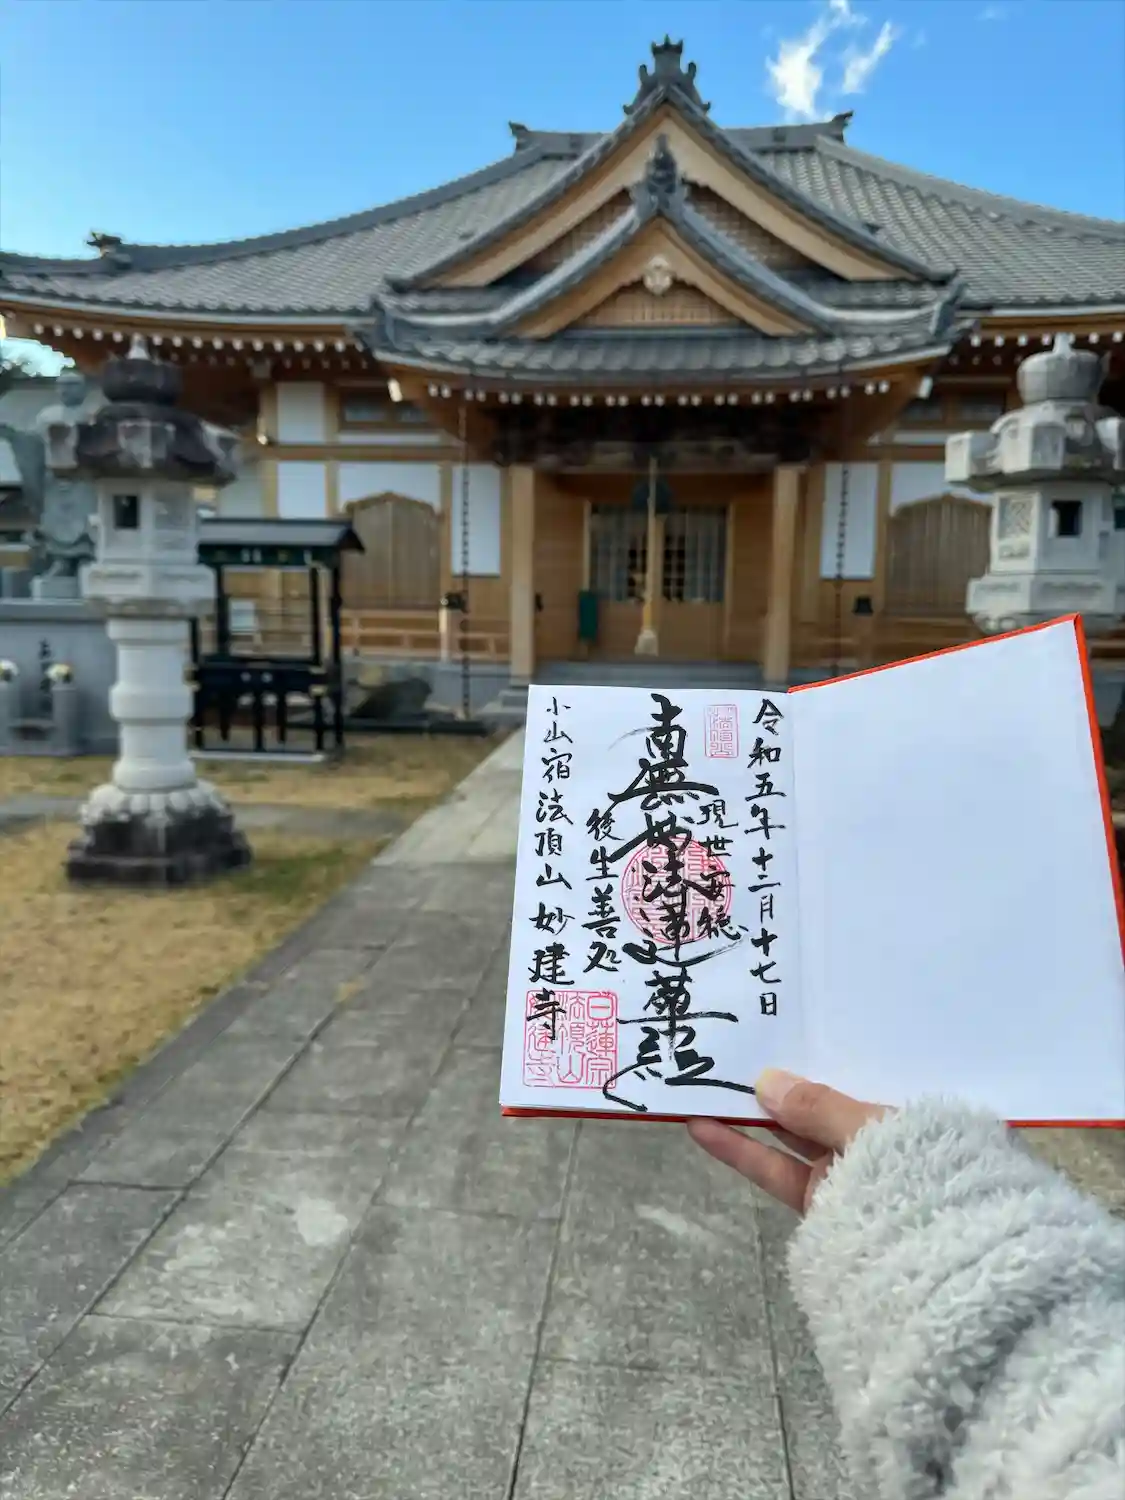 令和五年十二月十七日
現世安穏
南無妙法蓮華経
後生善処
小山宿法頂山妙建寺
日蓮宗
法頂山
妙建寺